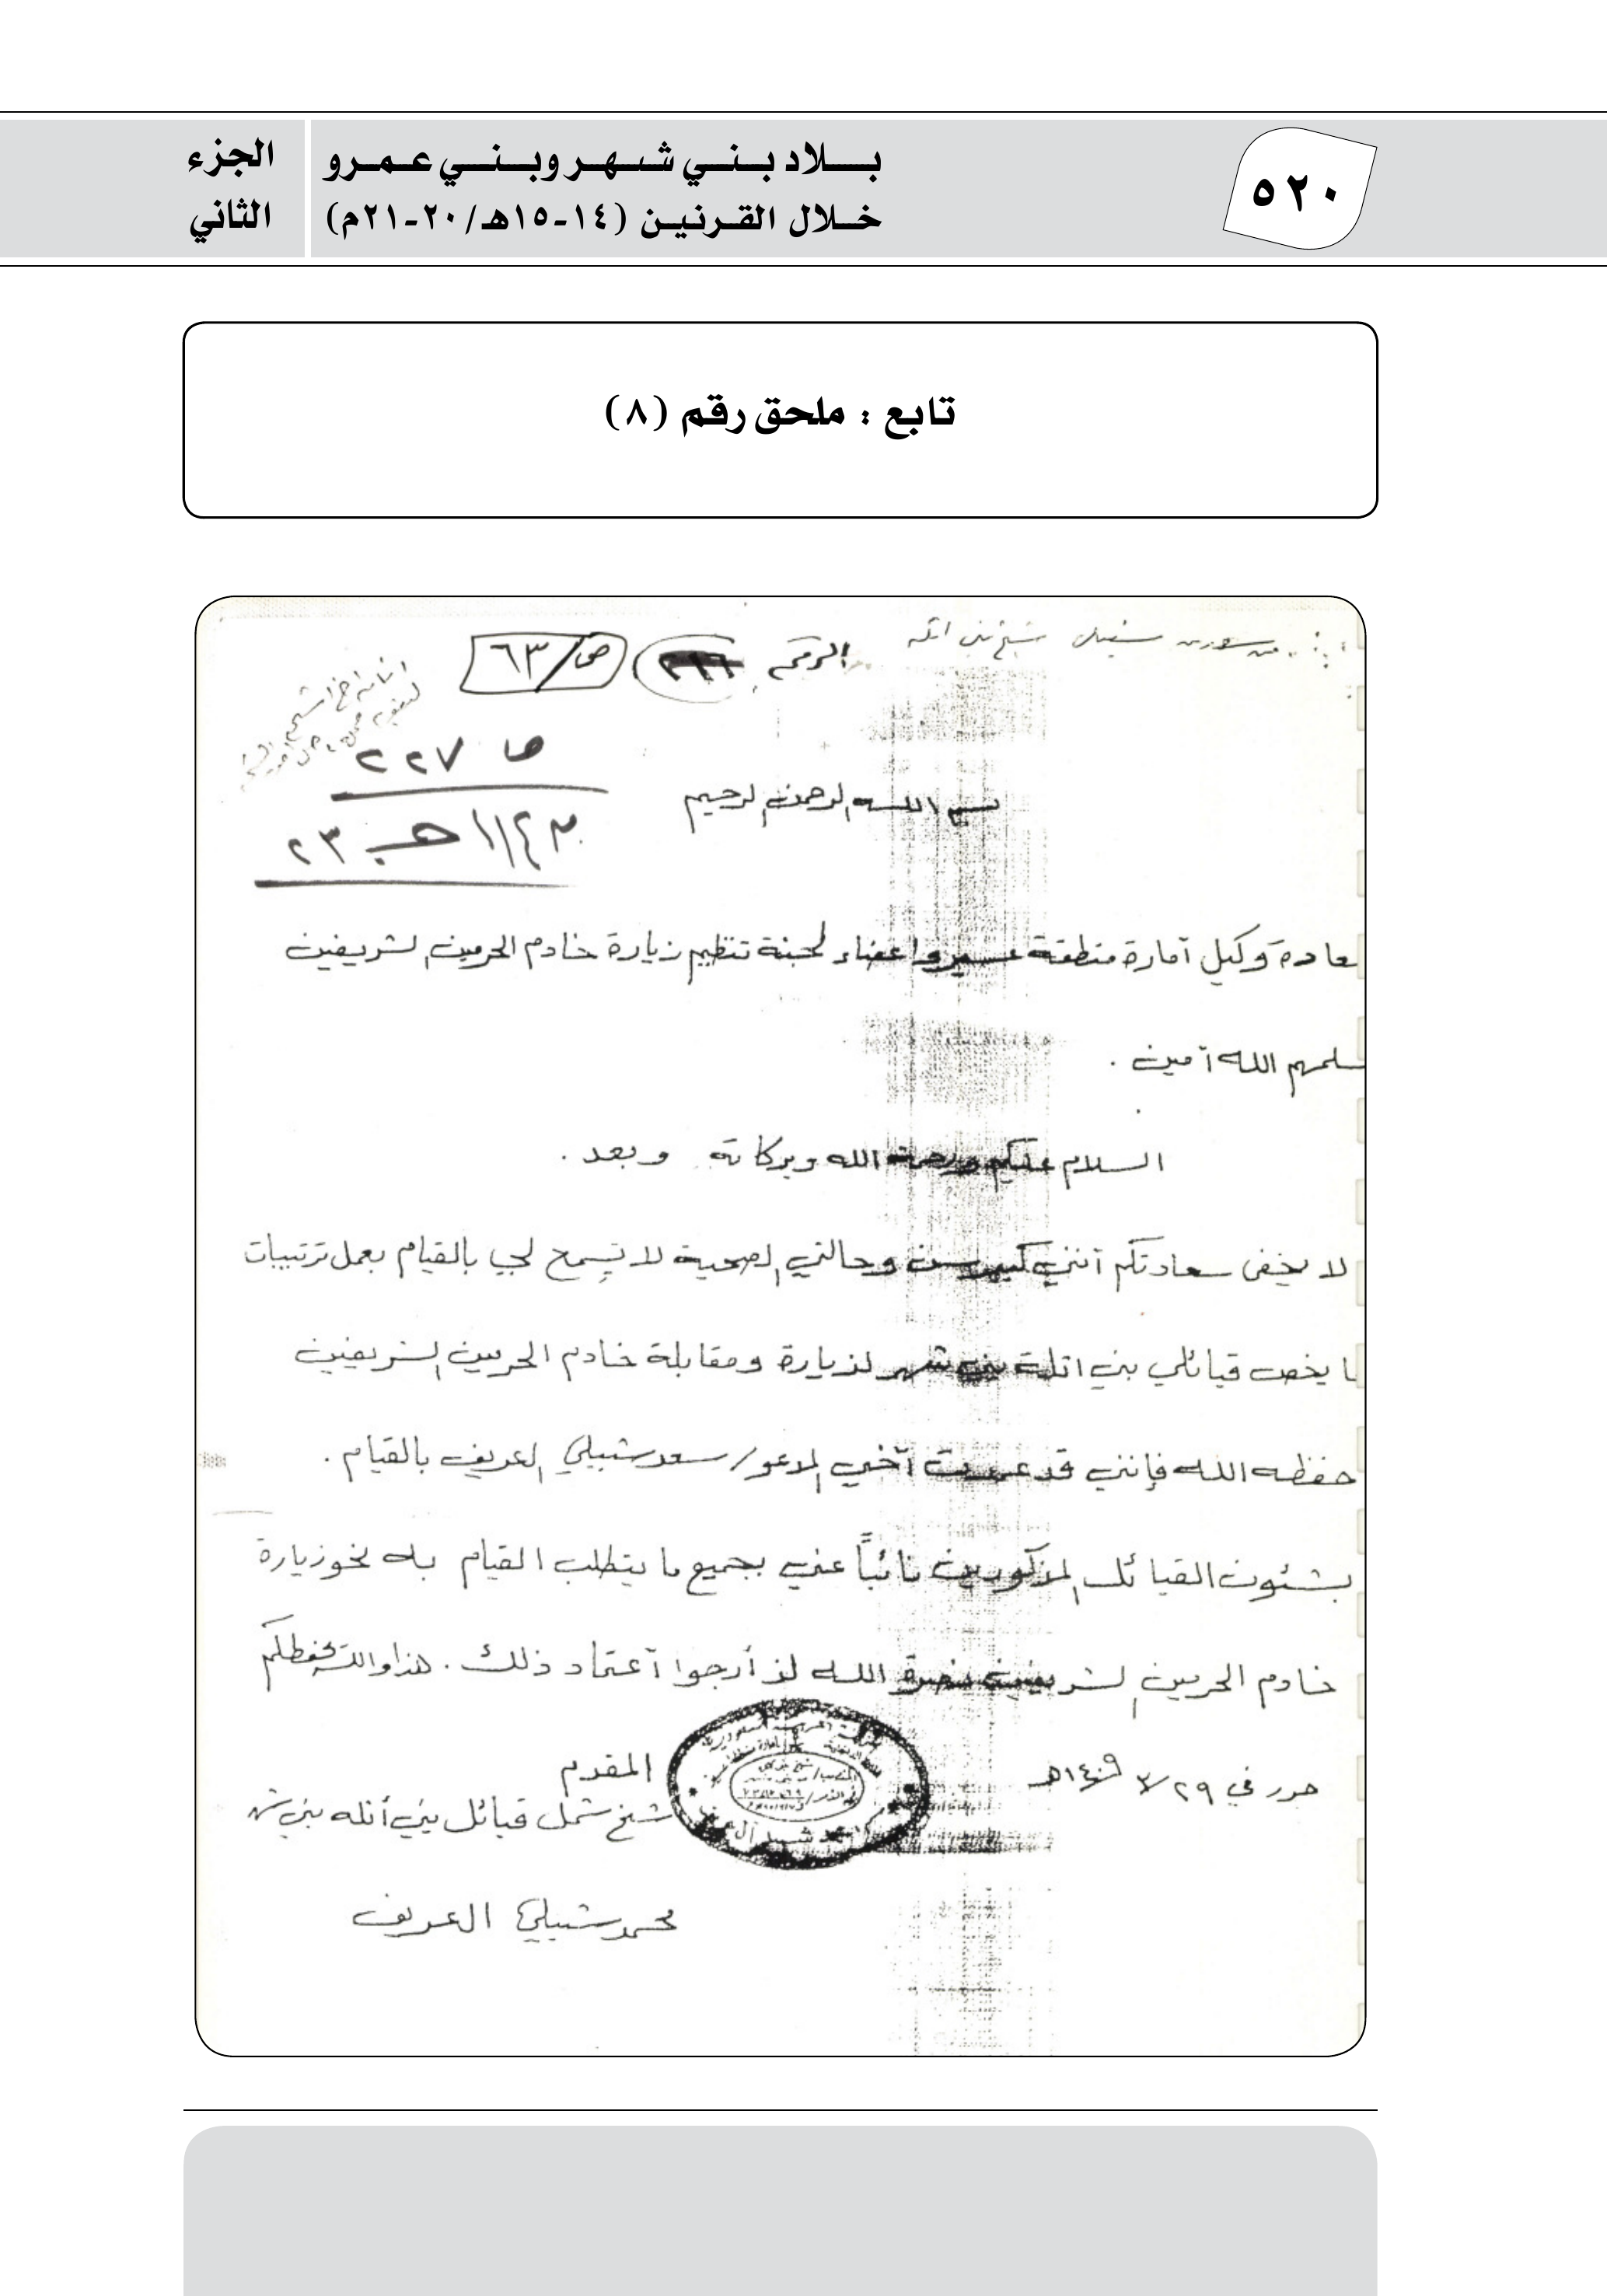 ٥٢٠
بلاد بني شهر وبني عمرو
خلال القرنين (١٤-١٥هـ/٢٠-٢١م)
الجزء
الثاني
تابع : ملحق رقم (٨)
الرقم
ص/٦٣
ص ٢٢٧
هـ ٢٣
بسم الله الرحمن الرحيم
سعادة وكيل آمارة منطقة عسير واعضاء لجنة تنظيم زيارة خادم الحرمين الشريفين
سلمهم الله آمين .
السلام عليكم ورحمة الله وبركاتة وبعد .
لا يخفى سعادتكم آنني كبير سن وحالتي الصحية لا تسمح لي بالقيام بعمل ترتيبات
ما يخص قبائلي بني اثلة بني شهر لزيارة ومقابلة خادم الحرمين الشريفين
حفظه الله فإنني قد عمدت آخي المدعو/ سعد شبيلي العريف بالقيام .
بشئون القبائل المذكورين نائباً عني بجميع ما يتطلب القيام به نحو زيارة
خادم الحرمين الشريفين نصرة الله لذ أرجوا آعتماد ذلك . هذا والله يحفظكم
حرر في ٢٩/٣/١٤٠٩هـ
المقدم
شيخ شمل قبائل بني أثله بني شهر
محمد شبيلي العريف